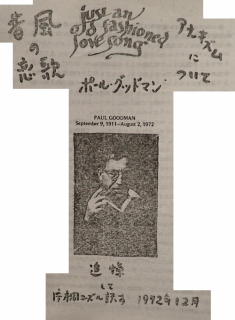 昔風の恋歌
just an
old fashioned
love song
アナキズムについて
ポール・グッドマン
PAUL GOODMAN
September 9, 1911–August 2, 1972
追憶
して
片桐ユズル訳す 1972年12月